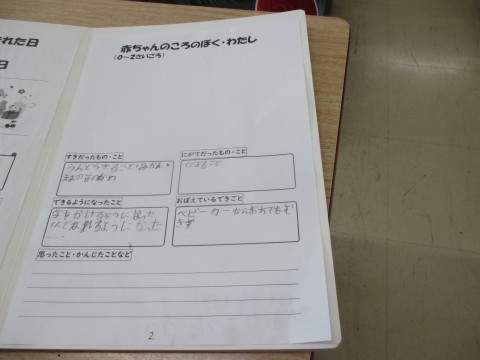 れた日
日
赤ちゃんのころのぼく・わたし
(0~2さいころ)
すきだったもの・こと
うんどうすること・みかん。
にがてだったもの・こと
ねること
できるようになったこと
字をかけるようになった
になった
おぼえているできごと
ベビーカーからおちてもむ
きず
思ったこと・かんじたことなど
2